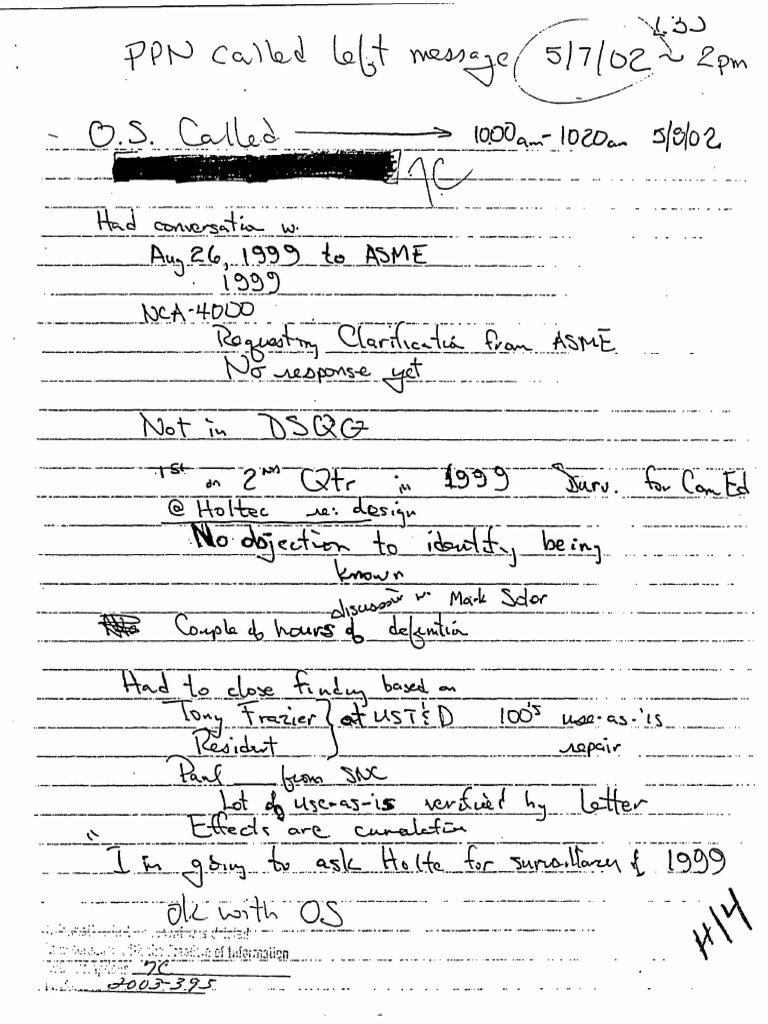 PPN called left message 5/7/02 ~ 2pm
- O.S. Called → 1000am - 1020am 5/8/02
7C
Had conversation w.
Aug 26, 1999 to ASME
1999
NCA-4000
Requesting Clarification from ASME
No response yet
Not in DSQG
1st or 2nd Qtr in 1999 Surv. for ComEd
@ Holtec re: design
No objection to identity being
known
discussion w. Mark Soler
Couple of hours of definition
Had to close finding based on
Tony Frazier } at UST&D 100's use-as-is
Resident repair
Paul ___ from SNC
Lot of use-as-is verified by letter
Effects are cumulative
" I'm going to ask Holtec for surveillance of 1999
ok with OS
H/14
of Information
7C
2003-395